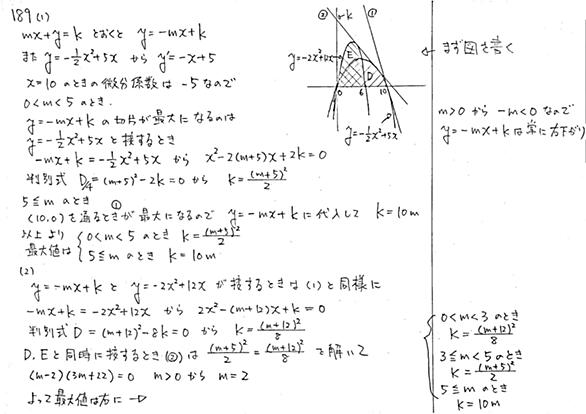 189 (1)
mx+y=k とおくと y=-mx+k
また y=-1/2x²+5x から y'=-x+5
x=10 のときの微分係数は -5なので
0<m<5のとき.
y=-mx+k の切片が最大になるのは
y=-1/2x²+5x と接するとき
-mx+k=-1/2x²+5x から x²-2(m+5)x+2k=0
判別式 D/4=(m+5)²-2k=0 から k=(m+5)²/2
5≦m のとき ①
(10,0)を通るときが最大になるので y=-mx+k に代入して k=10m
以上より
最大値は
0<m<5 のとき k=(m+5)²/2
5≦m のとき k=10m
(2)
y=-mx+k と y=-2x²+12x が接するときは (1)と同様に
-mx+k=-2x²+12x から 2x²-(m+12)x+k=0
判別式 D=(m+12)²-8k=0 から k=(m+12)²/8
D,Eと同時に接するとき(②)は (m+5)²/2=(m+12)²/8 を解いて
(m-2)(3m+22)=0 m>0から m=2
よって最大値は右に→
② k ①
y=-2x²+12x
E
D
0 6 10
y=-1/2x²+5x
← まず図を書く
m>0 から -m<0 なので
y=-mx+kは常に右下がり
0<m<3 のとき
k=(m+12)²/8
3≦m<5のとき
k=(m+5)²/2
5≦m のとき
k=10m